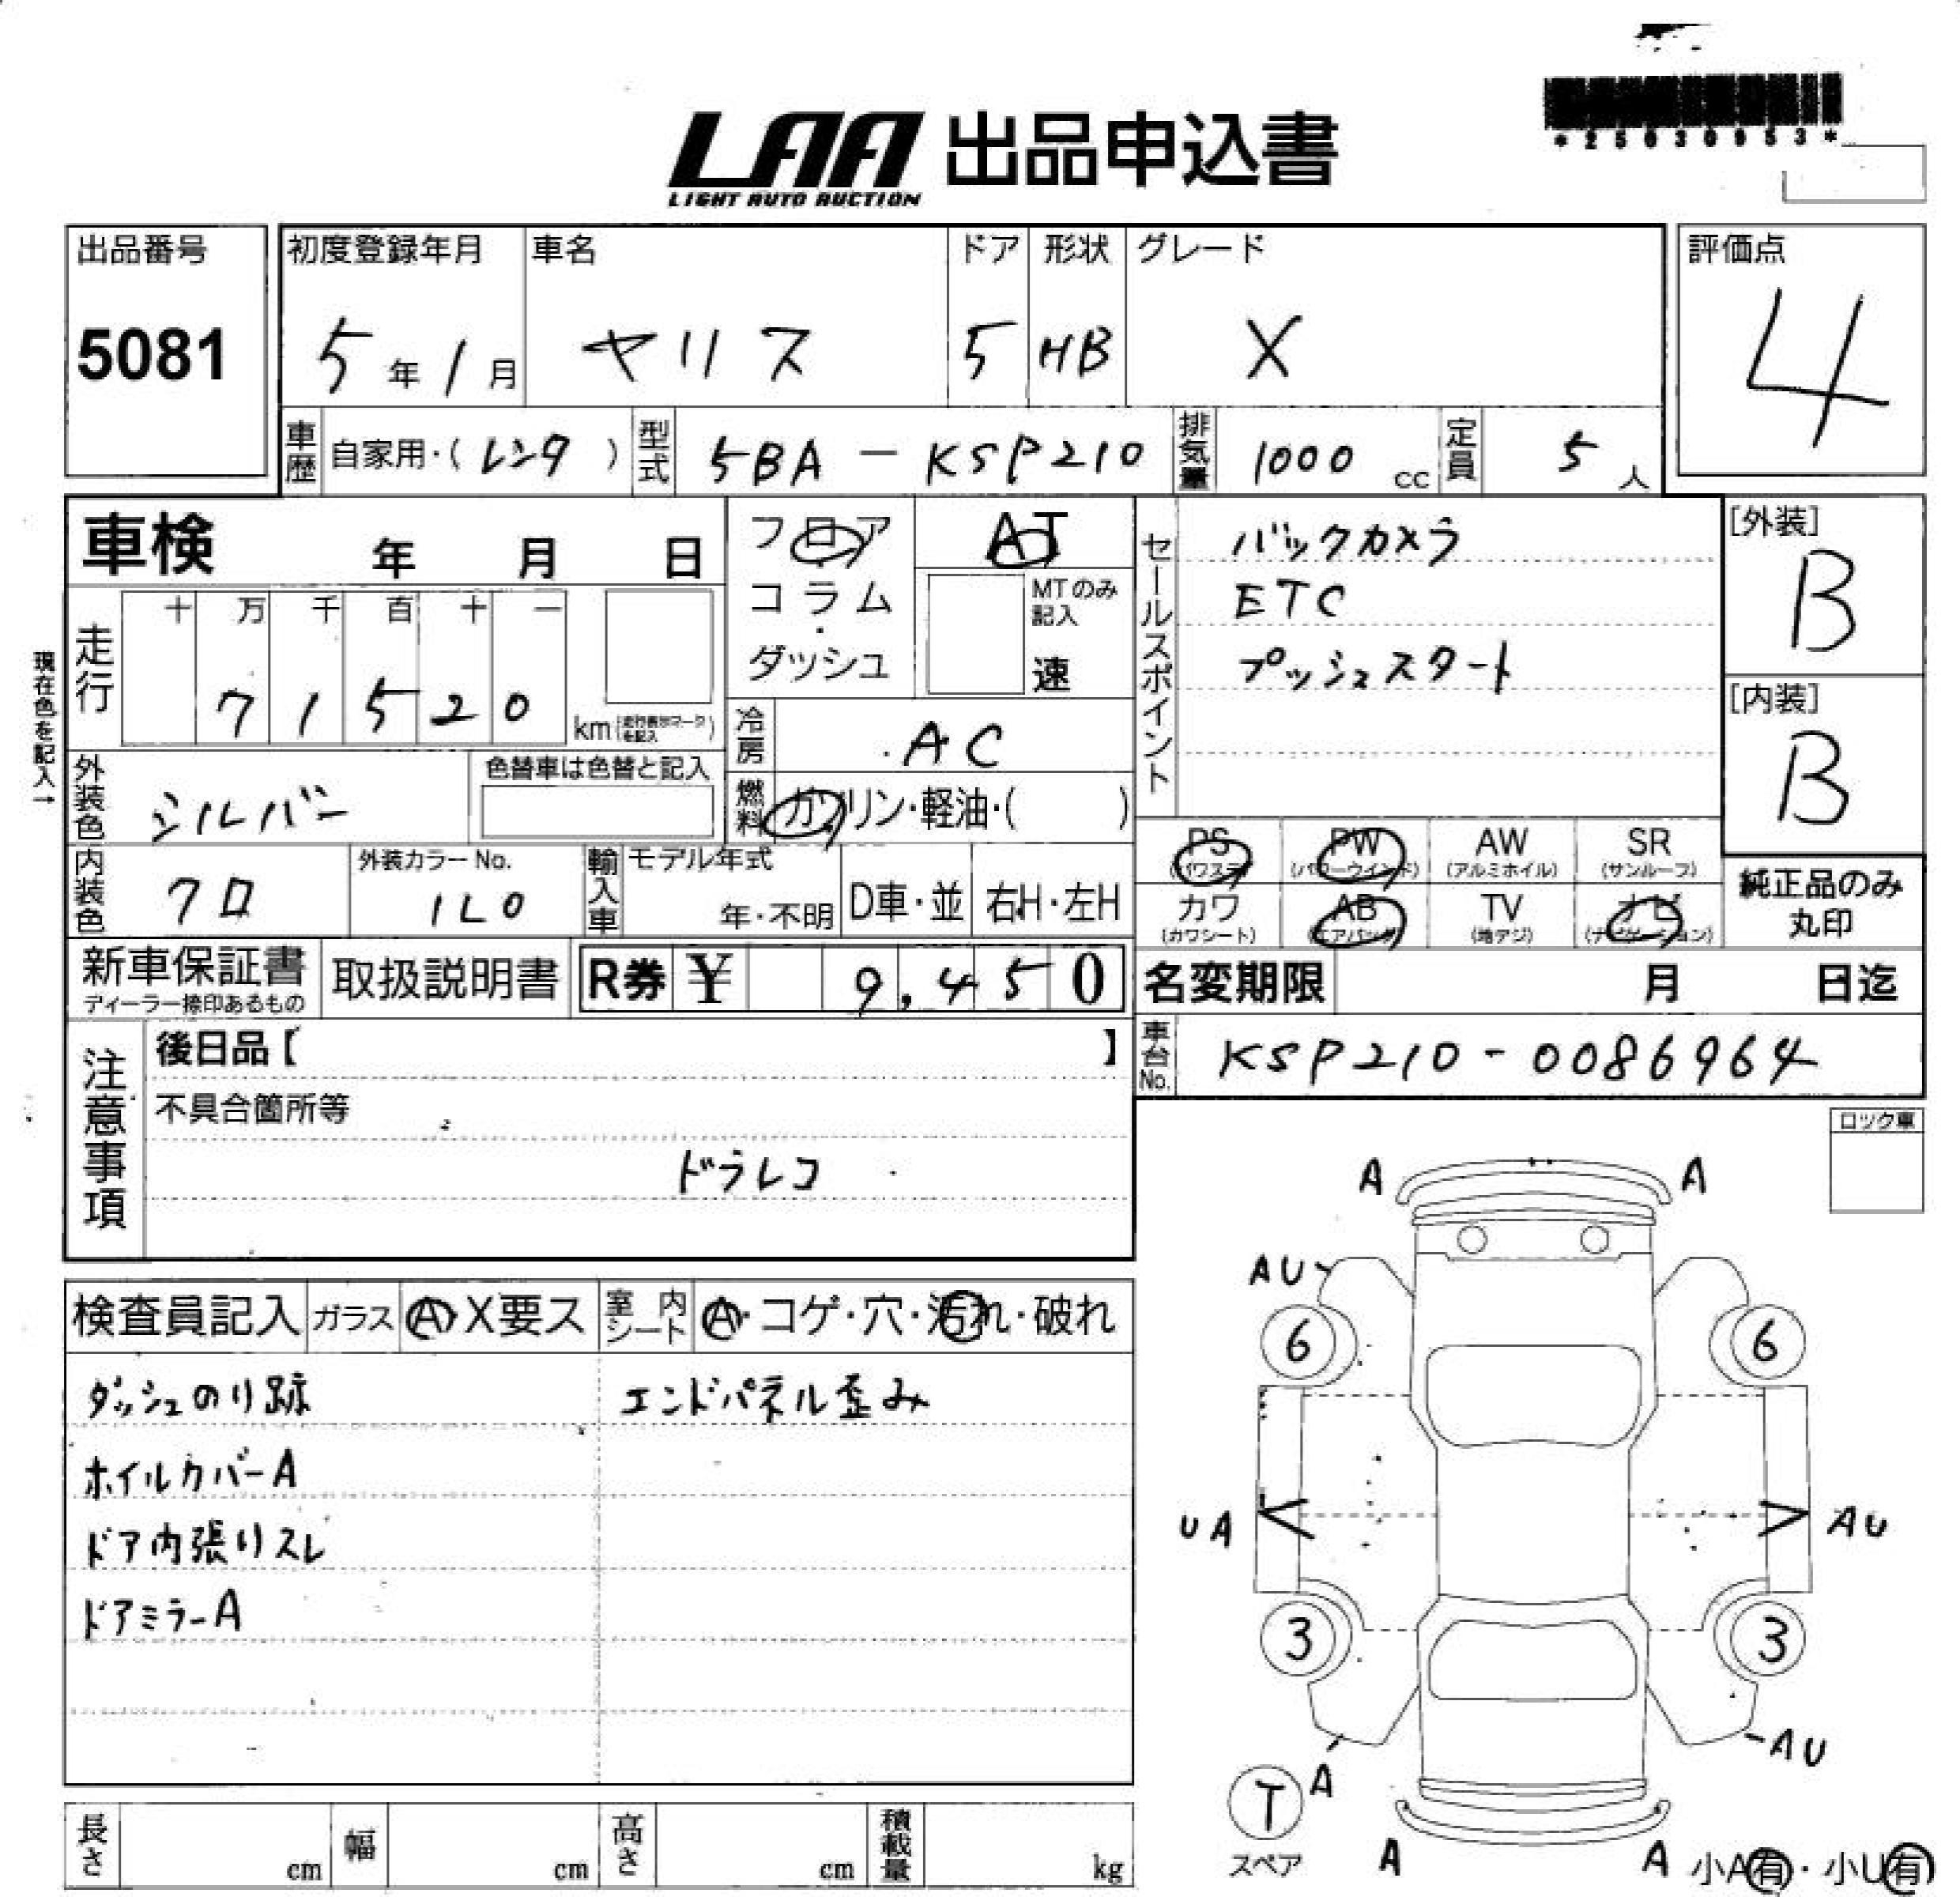 *25030953*
LAA 出品申込書
LIGHT AUTO AUCTION
出品番号 初度登録年月 車名 ドア 形状 グレード 評価点
5081 5年 1月 ヤリス 5 HB X 4
車歴 自家用・(レンタ) 型式 5BA-KSP210 排気量 1000cc 定員 5人
車検 年 月 日
フロア AT
コラム・ MTのみ記入
ダッシュ 速
セールスポイント
バックカメラ
ETC
プッシュスタート
[外装]
B
[内装]
B
現在色を記入→
走行 十 万 千 百 十 一
7 1 5 2 0 km(走行表示マークを記入)
冷房 AC
外装色 シルバー 色替車は色替と記入
燃料 ガソリン・軽油・( )
PS PW AW SR
(パワステ) (パワーウインド) (アルミホイル) (サンルーフ)
カワ AB TV ナビ
(カワシート) (エアバック) (地デジ) (ナビゲーション)
純正品のみ
丸印
内装色 クロ 外装カラーNo. 1L0 輸入車 モデル年式 年・不明 D車・並 右H・左H
新車保証書 取扱説明書 R券 ¥ 9,450
ディーラー捺印あるもの
名変期限 月 日迄
注意事項
後日品【 】
車台No. KSP210-0086964
不具合箇所等
ドラレコ
ロック車
検査員記入 ガラス A・X要ス 室内シート A・コゲ・穴・汚れ・破れ
ダッシュのり跡 エンドパネル歪み
ホイルカバーA
ドア内張りスレ
ドアミラーA
A A
AU
6 6
UA AU
3 3
AU
T A
スペア
A A 小A有・小U有
長さ cm 幅 cm 高さ cm 積載量 kg